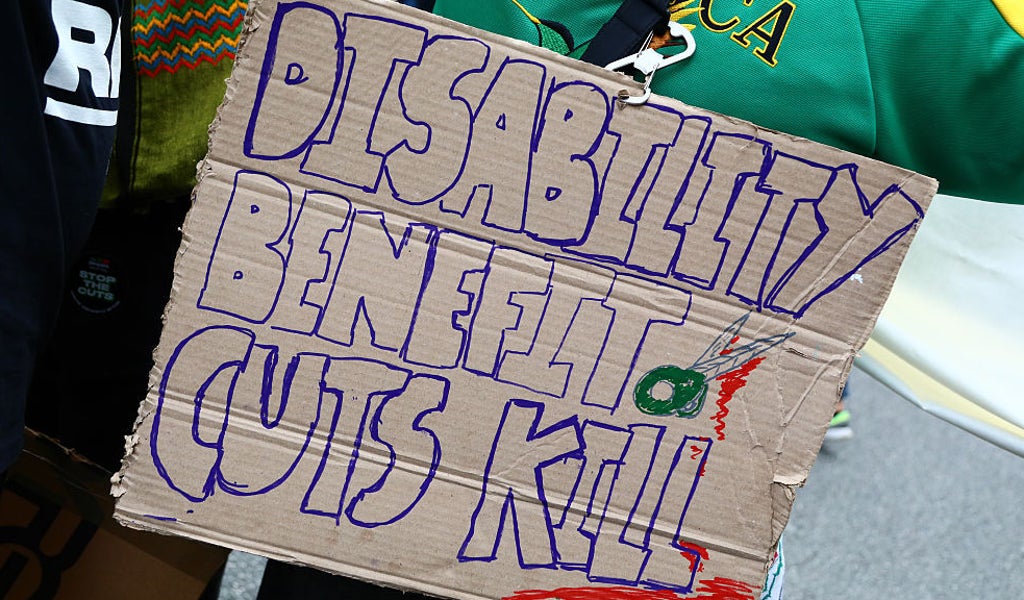 CA
DISABILITY
BENEFIT
CUTS KILL
STOP
THE
CUTS